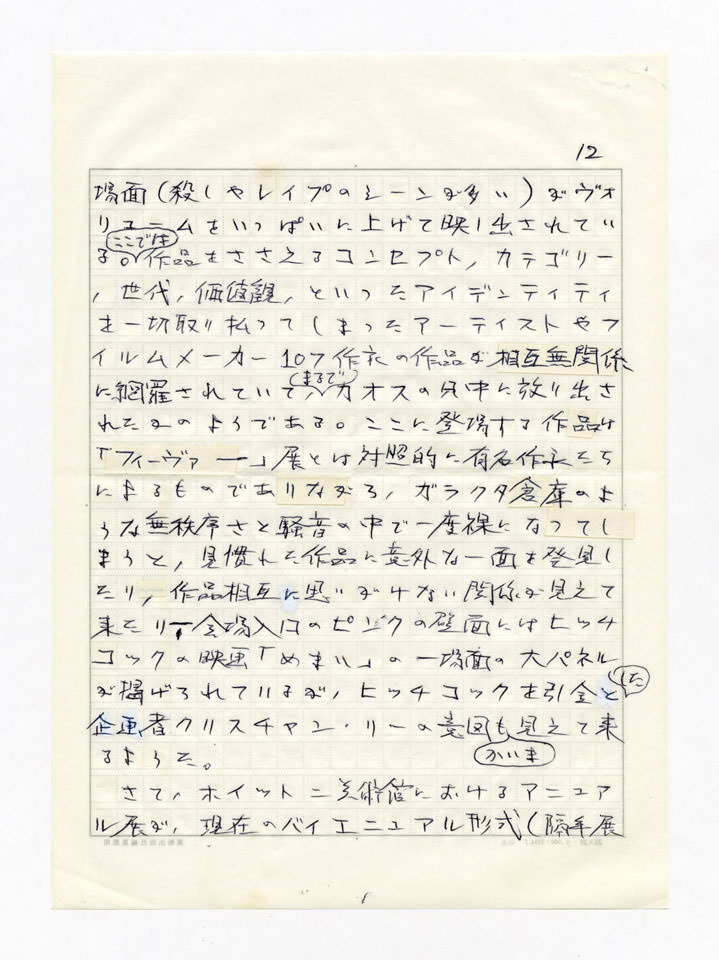 12
場面(殺しやレイプのシーンが多い)がヴォ
リュームをいっぱいに上げて映し出されてい
ここでは
る。作品をささえるコンセプト,カテゴリー
,世代,価値観,といったアイデンティティ
を一切取り払ってしまったアーティストやフ
イルムメーカー107作家の作品が相互無関係
に網羅されていて
まるで
カオスの只中に放り出さ
れたかのようである。ここに登場する作品は
「フィーヴァー」展とは対照的に有名作家たち
によるものでありながら,ガラクタ倉庫のよ
うな無秩序さと騒音の中で一度裸になってし
まうと,見慣れた作品に意外な一面を発見し
たり,作品相互に思いがけない関係が見えて
来たり 会場入口のピンクの壁面にはヒッチ
コックの映画「めまい」の一場面の大パネル
が揚げられているが,ヒッチコックを引合と
した
企画者クリスチャン・リーの意図も見えて来
かいま
るようだ。
さて,ホイットニー美術館におけるアニュア
ル展が,現在のバイエニュアル形式(隔年展